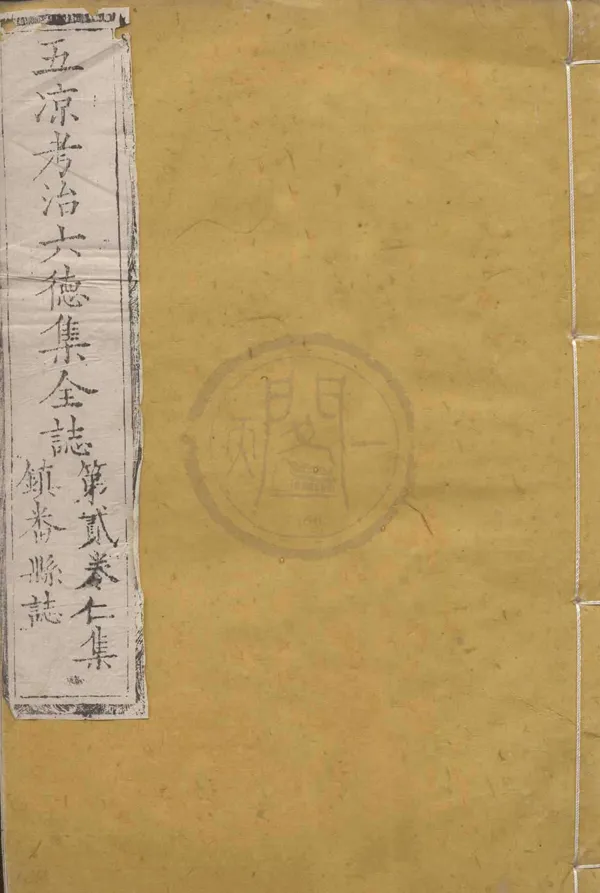 五凉考治六徳集全誌
第貳卷仁集
鎮番縣誌